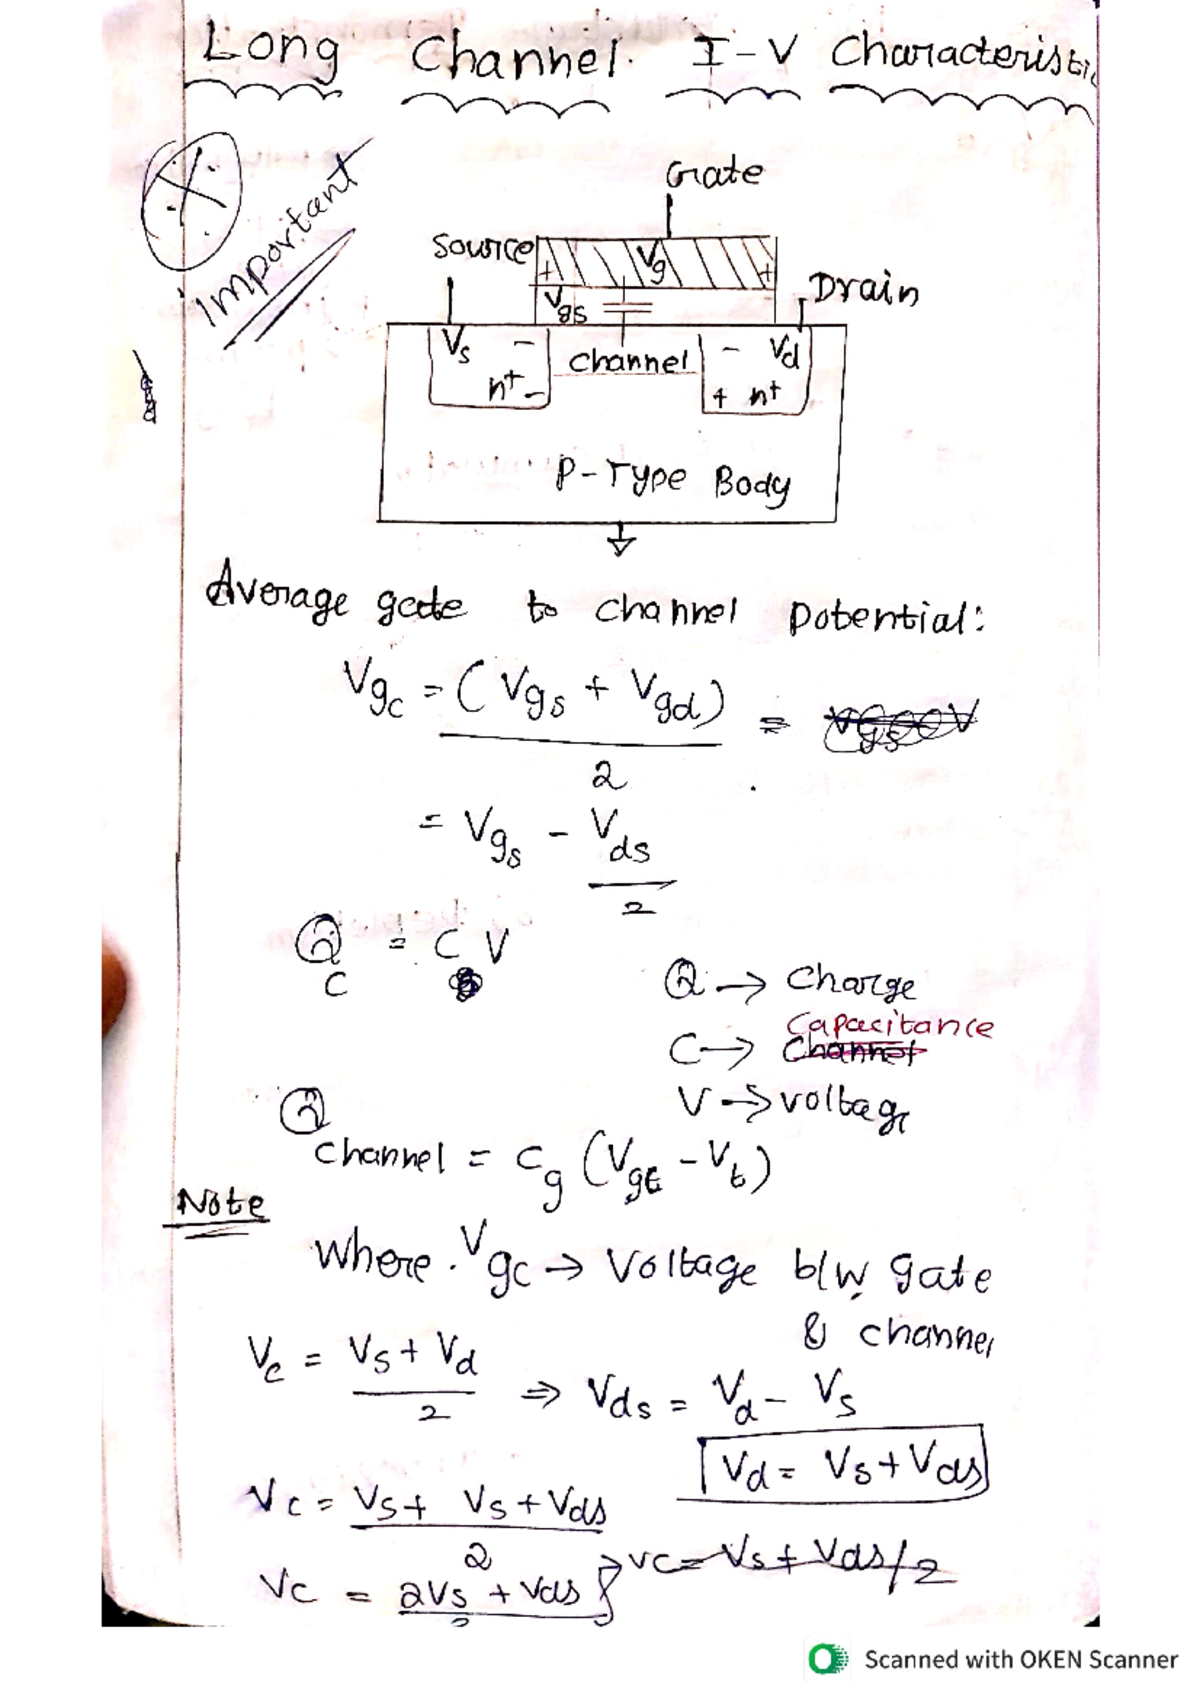 Long Channel I-V Characteristi
Important
Gate
Source
Vg
+ +
Drain
Vgs
Vs - channel - Vd
n+ - + n+
P-Type Body
Average gate to channel Potential:
Vgc = (Vgs + Vgd) =
2
= Vgs - Vds
2
Qc = C V
Q → Charge
Capacitance
C → Channel
V → voltage
Q channel = Cg (Vgc - Vt)
Note
Where Vgc → Voltage b/w gate
& channel
Vc = Vs + Vd
2
⇒ Vds = Vd - Vs
Vd = Vs + Vds
Vc = Vs + Vs + Vds
2
Vc = Vs + Vds/2
Vc = 2Vs + Vds
2
Scanned with OKEN Scanner